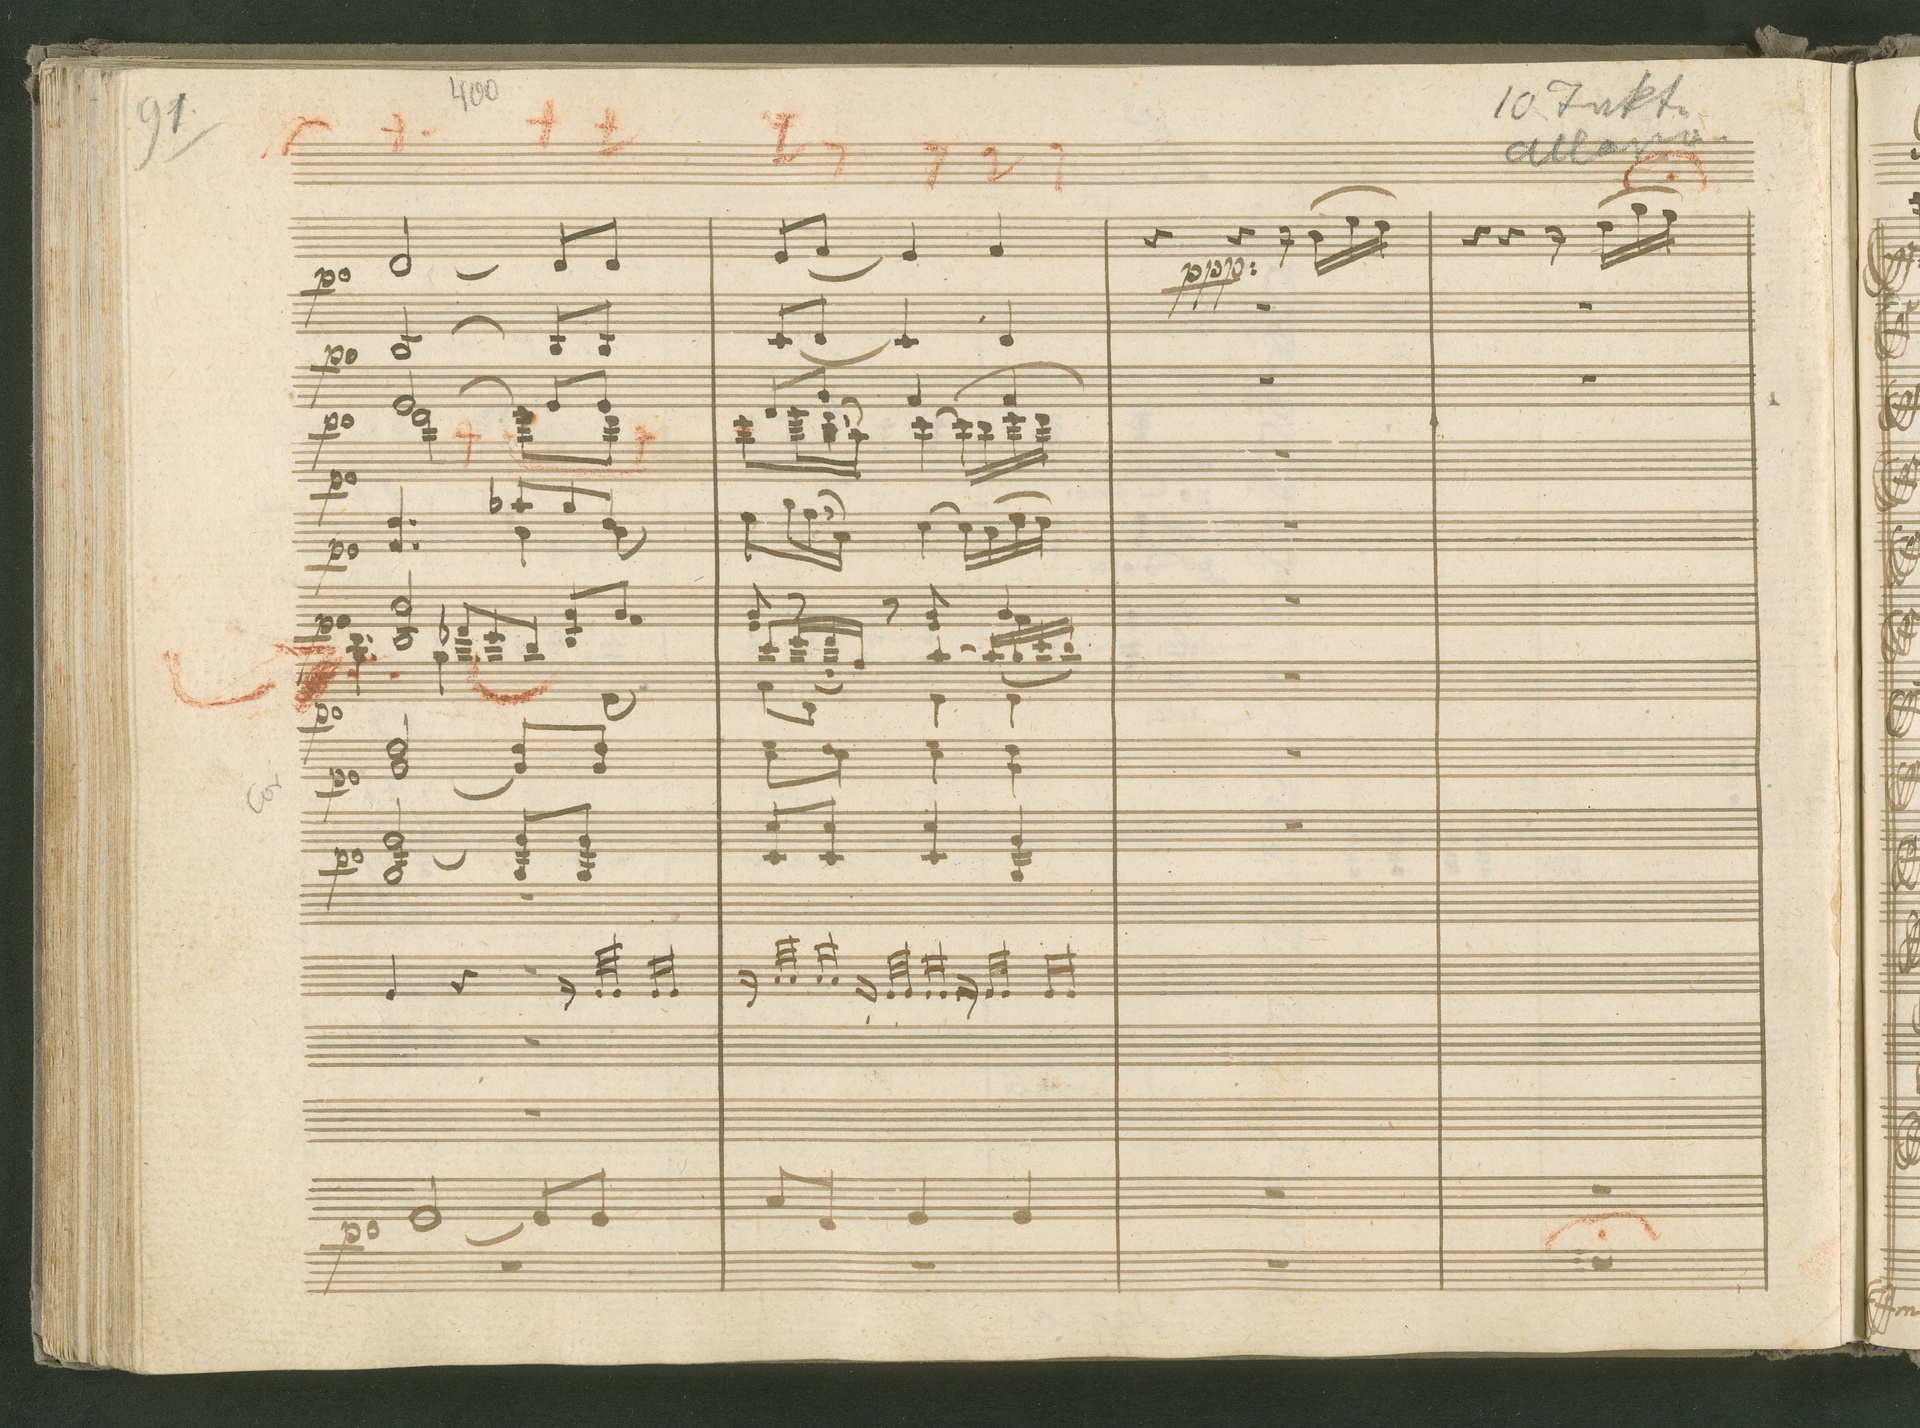 91.
400
10 Takt.
po
ppp:
po
po
po
po
po
po
po
Cor
po
po